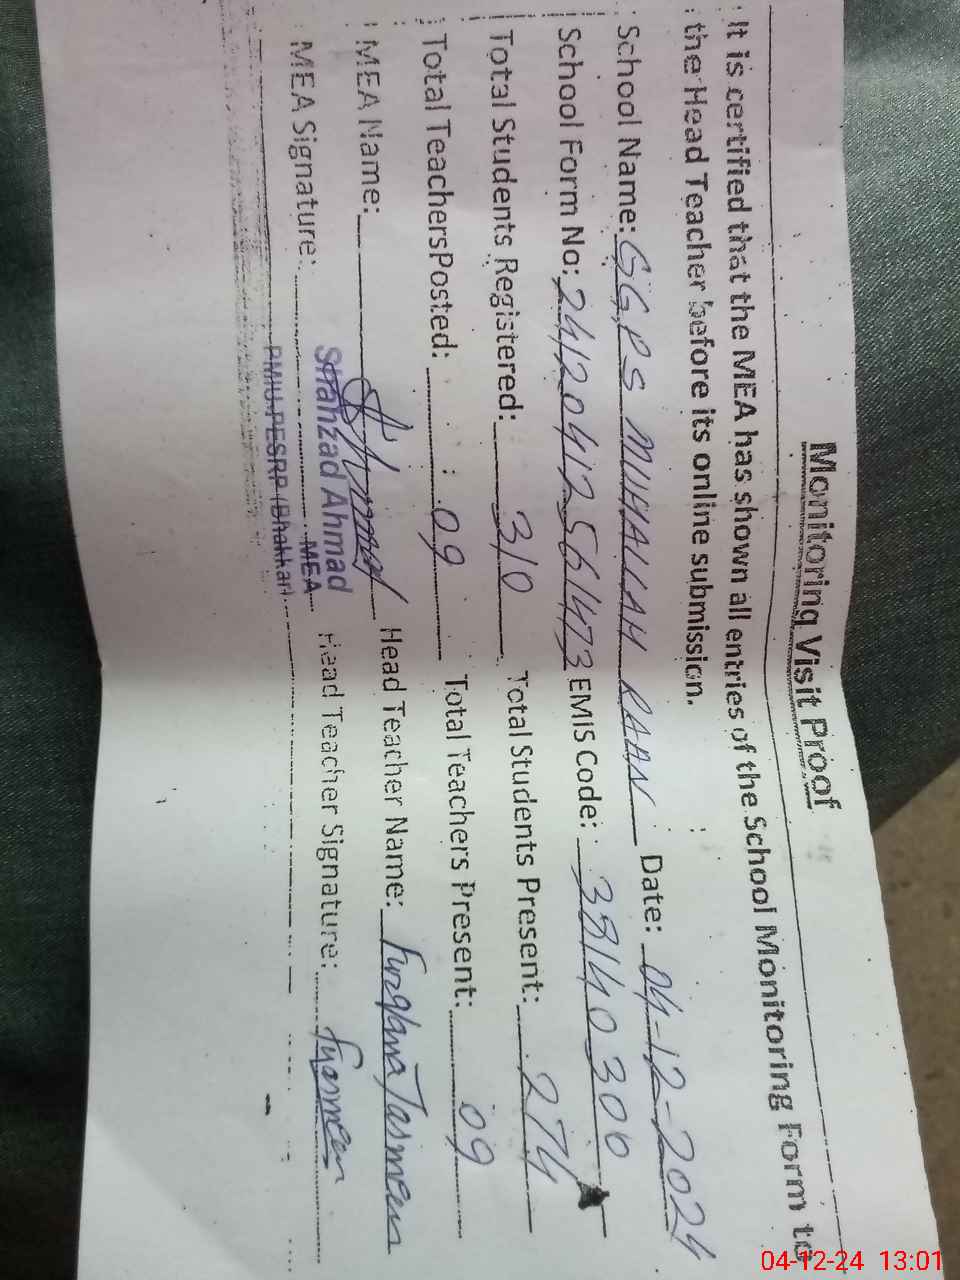 Monitoring Visit Proof
It is certified that the MEA has shown all entries of the School Monitoring Form to
the Head Teacher before its online submission.
School Name: GGPS MUHALLAH RAAN Date: 04-12-2024
School Form No: 24120412561473 EMIS Code: 38140306
Total Students Registered: 310 Total Students Present: 274
Total TeachersPosted: 09 Total Teachers Present: 09
MEA Name: Ahmad Head Teacher Name: Furqana Tasmeen
MEA Signature: Head Teacher Signature:
Shahzad Ahmad
MEA
PMIU-PESRP (Bhakkar)
04-12-24 13:01